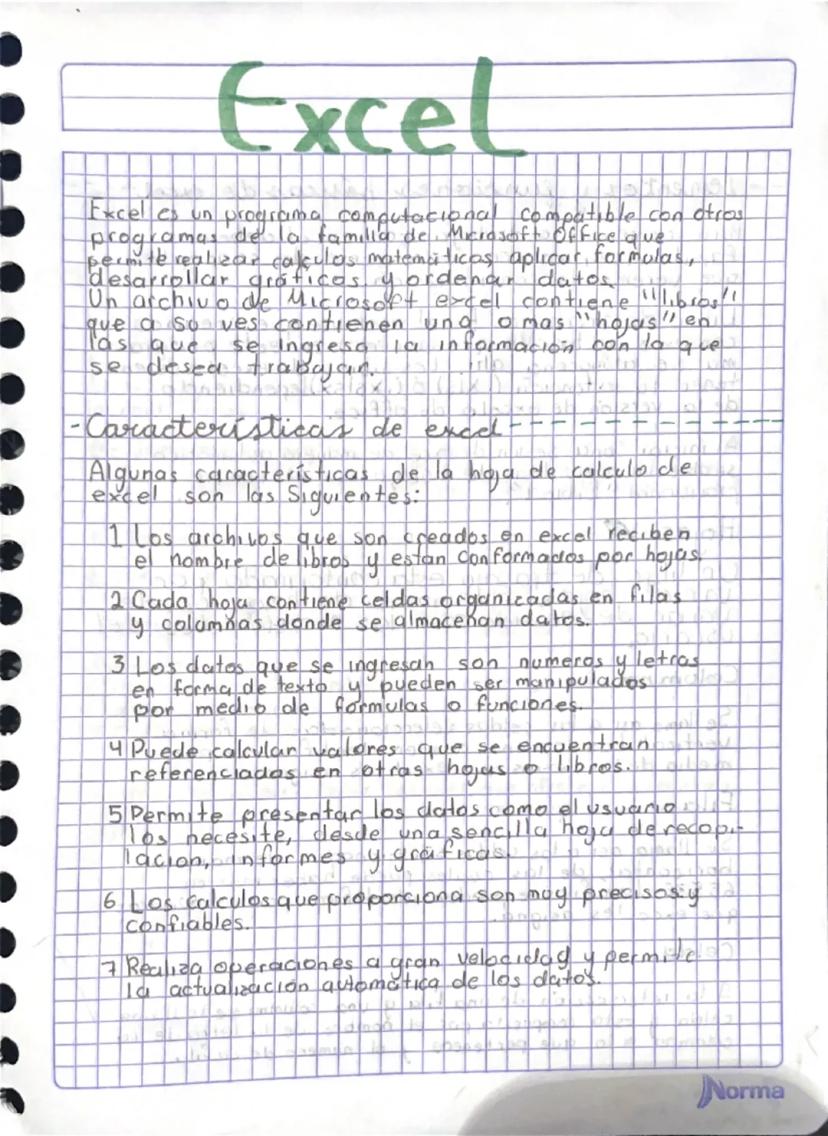 Excel
Excel es un programa computacional compatible con otros
programas de la familia de Microsoft Office que
permite realizar calculos matemáticos, aplicar formulas,
desarrollar gráficos y ordenar datos.
Un archivo de Microsoft excel contiene "libros"
que a su ves contienen una o mas "hojas" en
las que se ingresa la información con la que
se desea trabajar.
- Características de excel - - - - - - - - - - - -
Algunas características de la hoja de calculo de
excel son las Siguientes:
1 Los archivos que son creados en excel reciben
el nombre de libros y estan conformados por hojas.
2 Cada hoja contiene celdas organicadas en filas
y columnas donde se almacenan datos.
3 Los datos que se ingresan son numeros y letras
en forma de texto y pueden ser manipulados
por medio de formulas o funciones.
4 Puede calcular valores que se encuentran
referenciados en otras hojas o libros.
5 Permite presentar los datos como el usuario
los necesite, desde una sencilla hoja de recopi-
lacion, informes y gráficas.
6 Los calculos que proporciona son muy precisos y
confiables.
7 Realiza operaciones a gran velocidad y permite
la actualización automática de los datos.
Norma